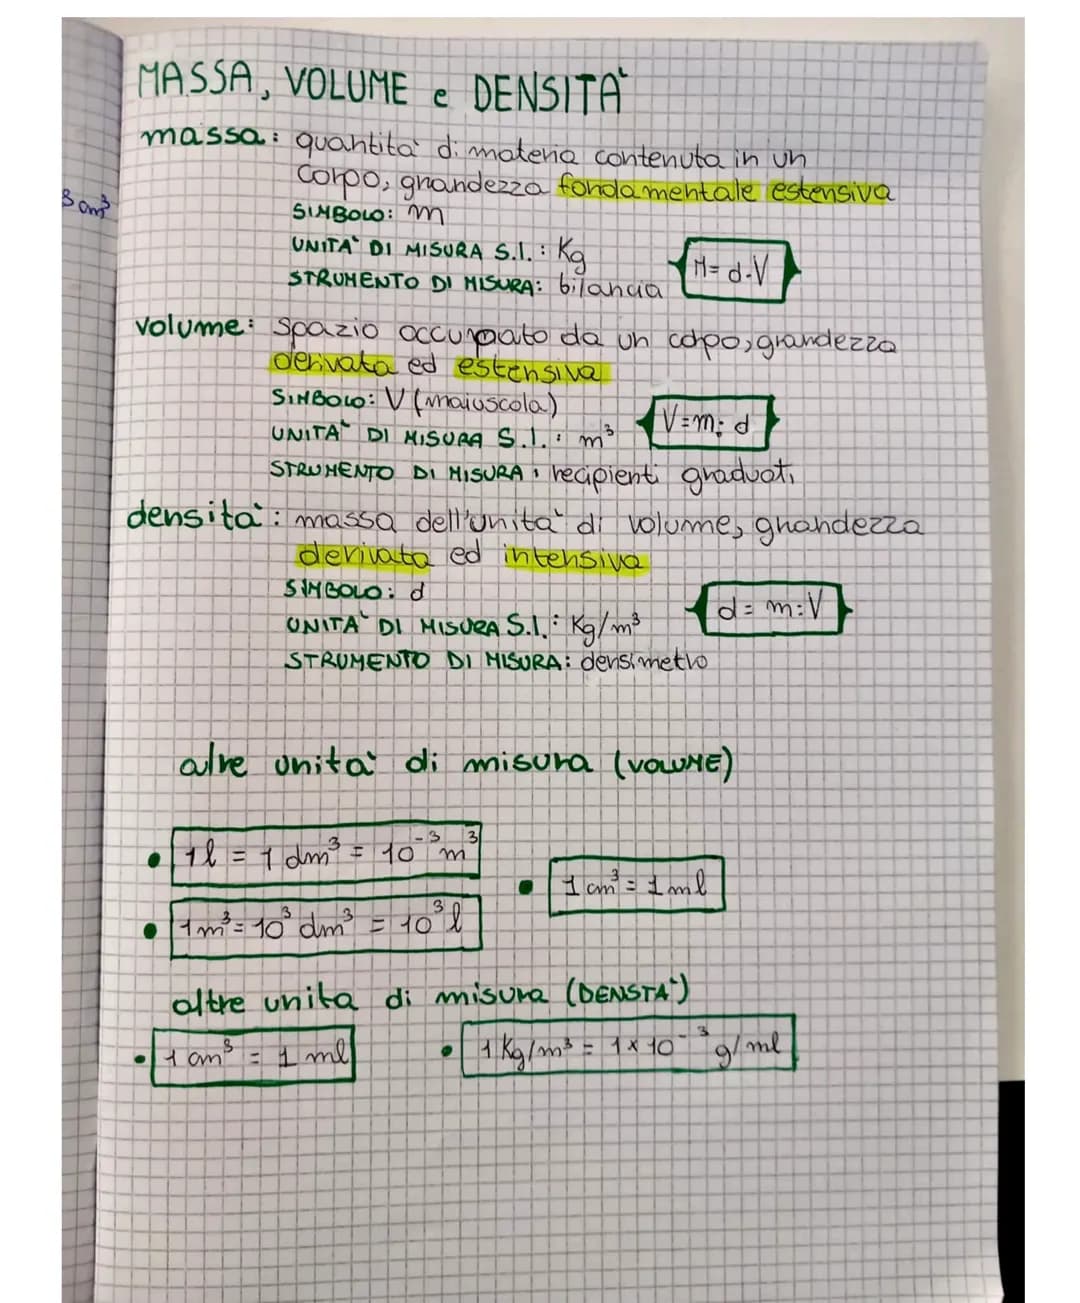 MASSA, VOLUME e DENSITÀ
massa: quantità di materia contenuta in un
corpo, grandezza fondamentale estensiva
3 cm³
SIMBOLO: m
UNITÀ DI MISURA S.I.: Kg
M= d·V
STRUMENTO DI MISURA: bilancia
volume: spazio occupato da un corpo, grandezza
derivata ed estensiva
SIMBOLO: V (maiuscola)
V=m:d
UNITÀ DI MISURA S.I.: m³
STRUMENTO DI MISURA: recipienti graduati
densità: massa dell'unità di volume, grandezza
derivata ed intensiva
SIMBOLO: d
d= m:V
UNITÀ DI MISURA S.I.: Kg/m³
STRUMENTO DI MISURA: densimetro
altre unità di misura (VOLUME)
• 1l = 1 dm³ = 10⁻³ m³
• 1 cm³ = 1 ml
• 1m³= 10³ dm³ = 10³ l
altre unita di misura (DENSTA')
• 1 cm³ = 1 ml
• 1 Kg/m³ = 1x10⁻³ g/ml